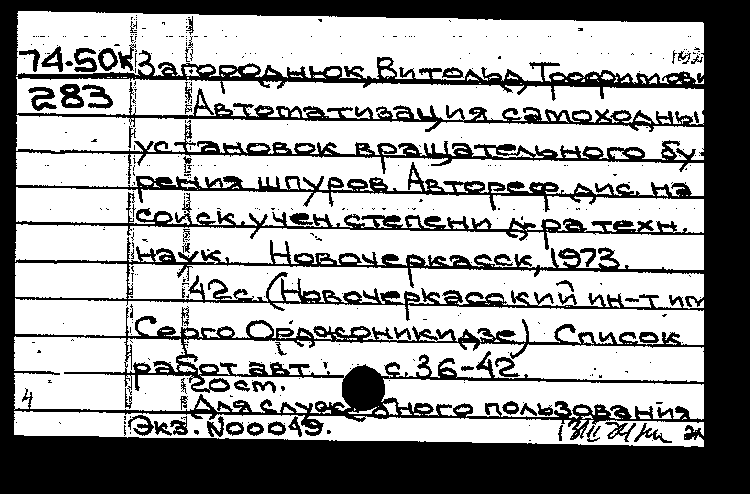 74-50к Загороднюк, Витольд Трофимови
283 Автоматизация самоходны
установок вращательного бу-
рения шпуров. Автореф. дис. на
соиск. учен. степени д-ра техн.
наук. Новочеркасск, 1973.
42с. (Новочеркасский ин-т им
Серго Орджоникидзе) Список
работ авт.: с. 36-42.
20см.
4 Для служебного пользования
Экз. №00049.